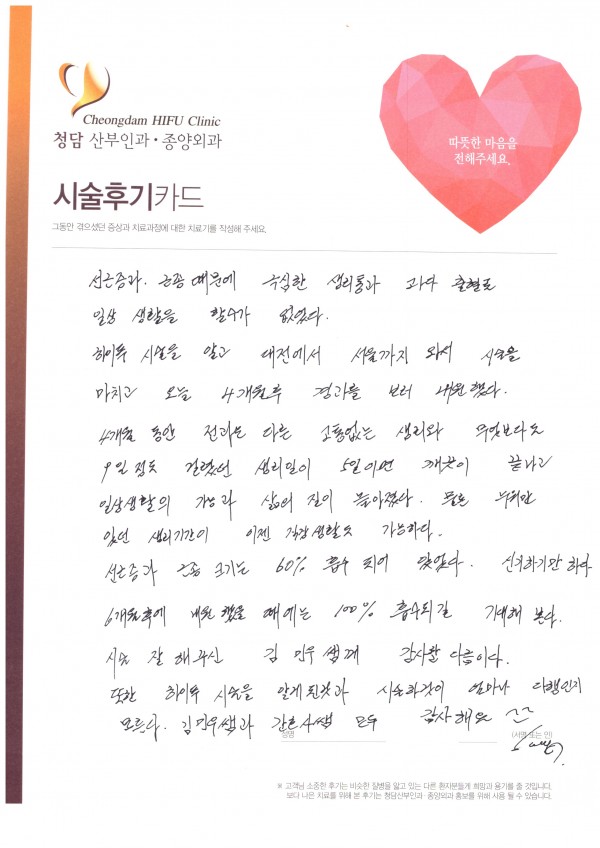 Cheongdam HIFU Clinic
청담 산부인과·종양외과
따뜻한 마음을
전해주세요.
시술후기카드
그동안 겪으셨던 증상과 치료과정에 대한 치료기를 작성해 주세요.
선근증과. 근종 때문에 극심한 생리통과 과다 출혈로
일상 생활을 할수가 없었다.
하이푸 시술을 알고 대전에서 서울까지 와서 시술을
마치고 오늘 4개월후 결과를 보러 내원했다.
4개월 동안 전과는 다른 고통없는 생리와 무엇보다도
9일 정도 걸렸던 생리일이 5일이면 깨끗이 끝나고
일상생활의 가능과 삶의 질이 높아졌다. 늘 누워만
있던 생리기간이 이젠 직장생활도 가능하다.
선근증과 근종 크기는 60% 흡수 되어 있었다. 신기하기만 하다
6개월후에 내원 했을 때에는 100% 흡수되길 기대해 본다.
시술 잘 해주신 김민우쌤께 감사할 다름이다.
또한 하이푸 시술을 알게된것과 시술한것이 얼마나 다행인지
모른다. 김민우쌤과 간호사쌤 모두 감사해요 ^^
성명 (서명 또는 인)
※ 고객님 소중한 후기는 비슷한 질병을 앓고 있는 다른 환자분들께 희망과 용기를 줄 것입니다.
보다 나은 치료를 위해 본 후기는 청담산부인과·종양외과 홍보를 위해 사용 될 수 있습니다.